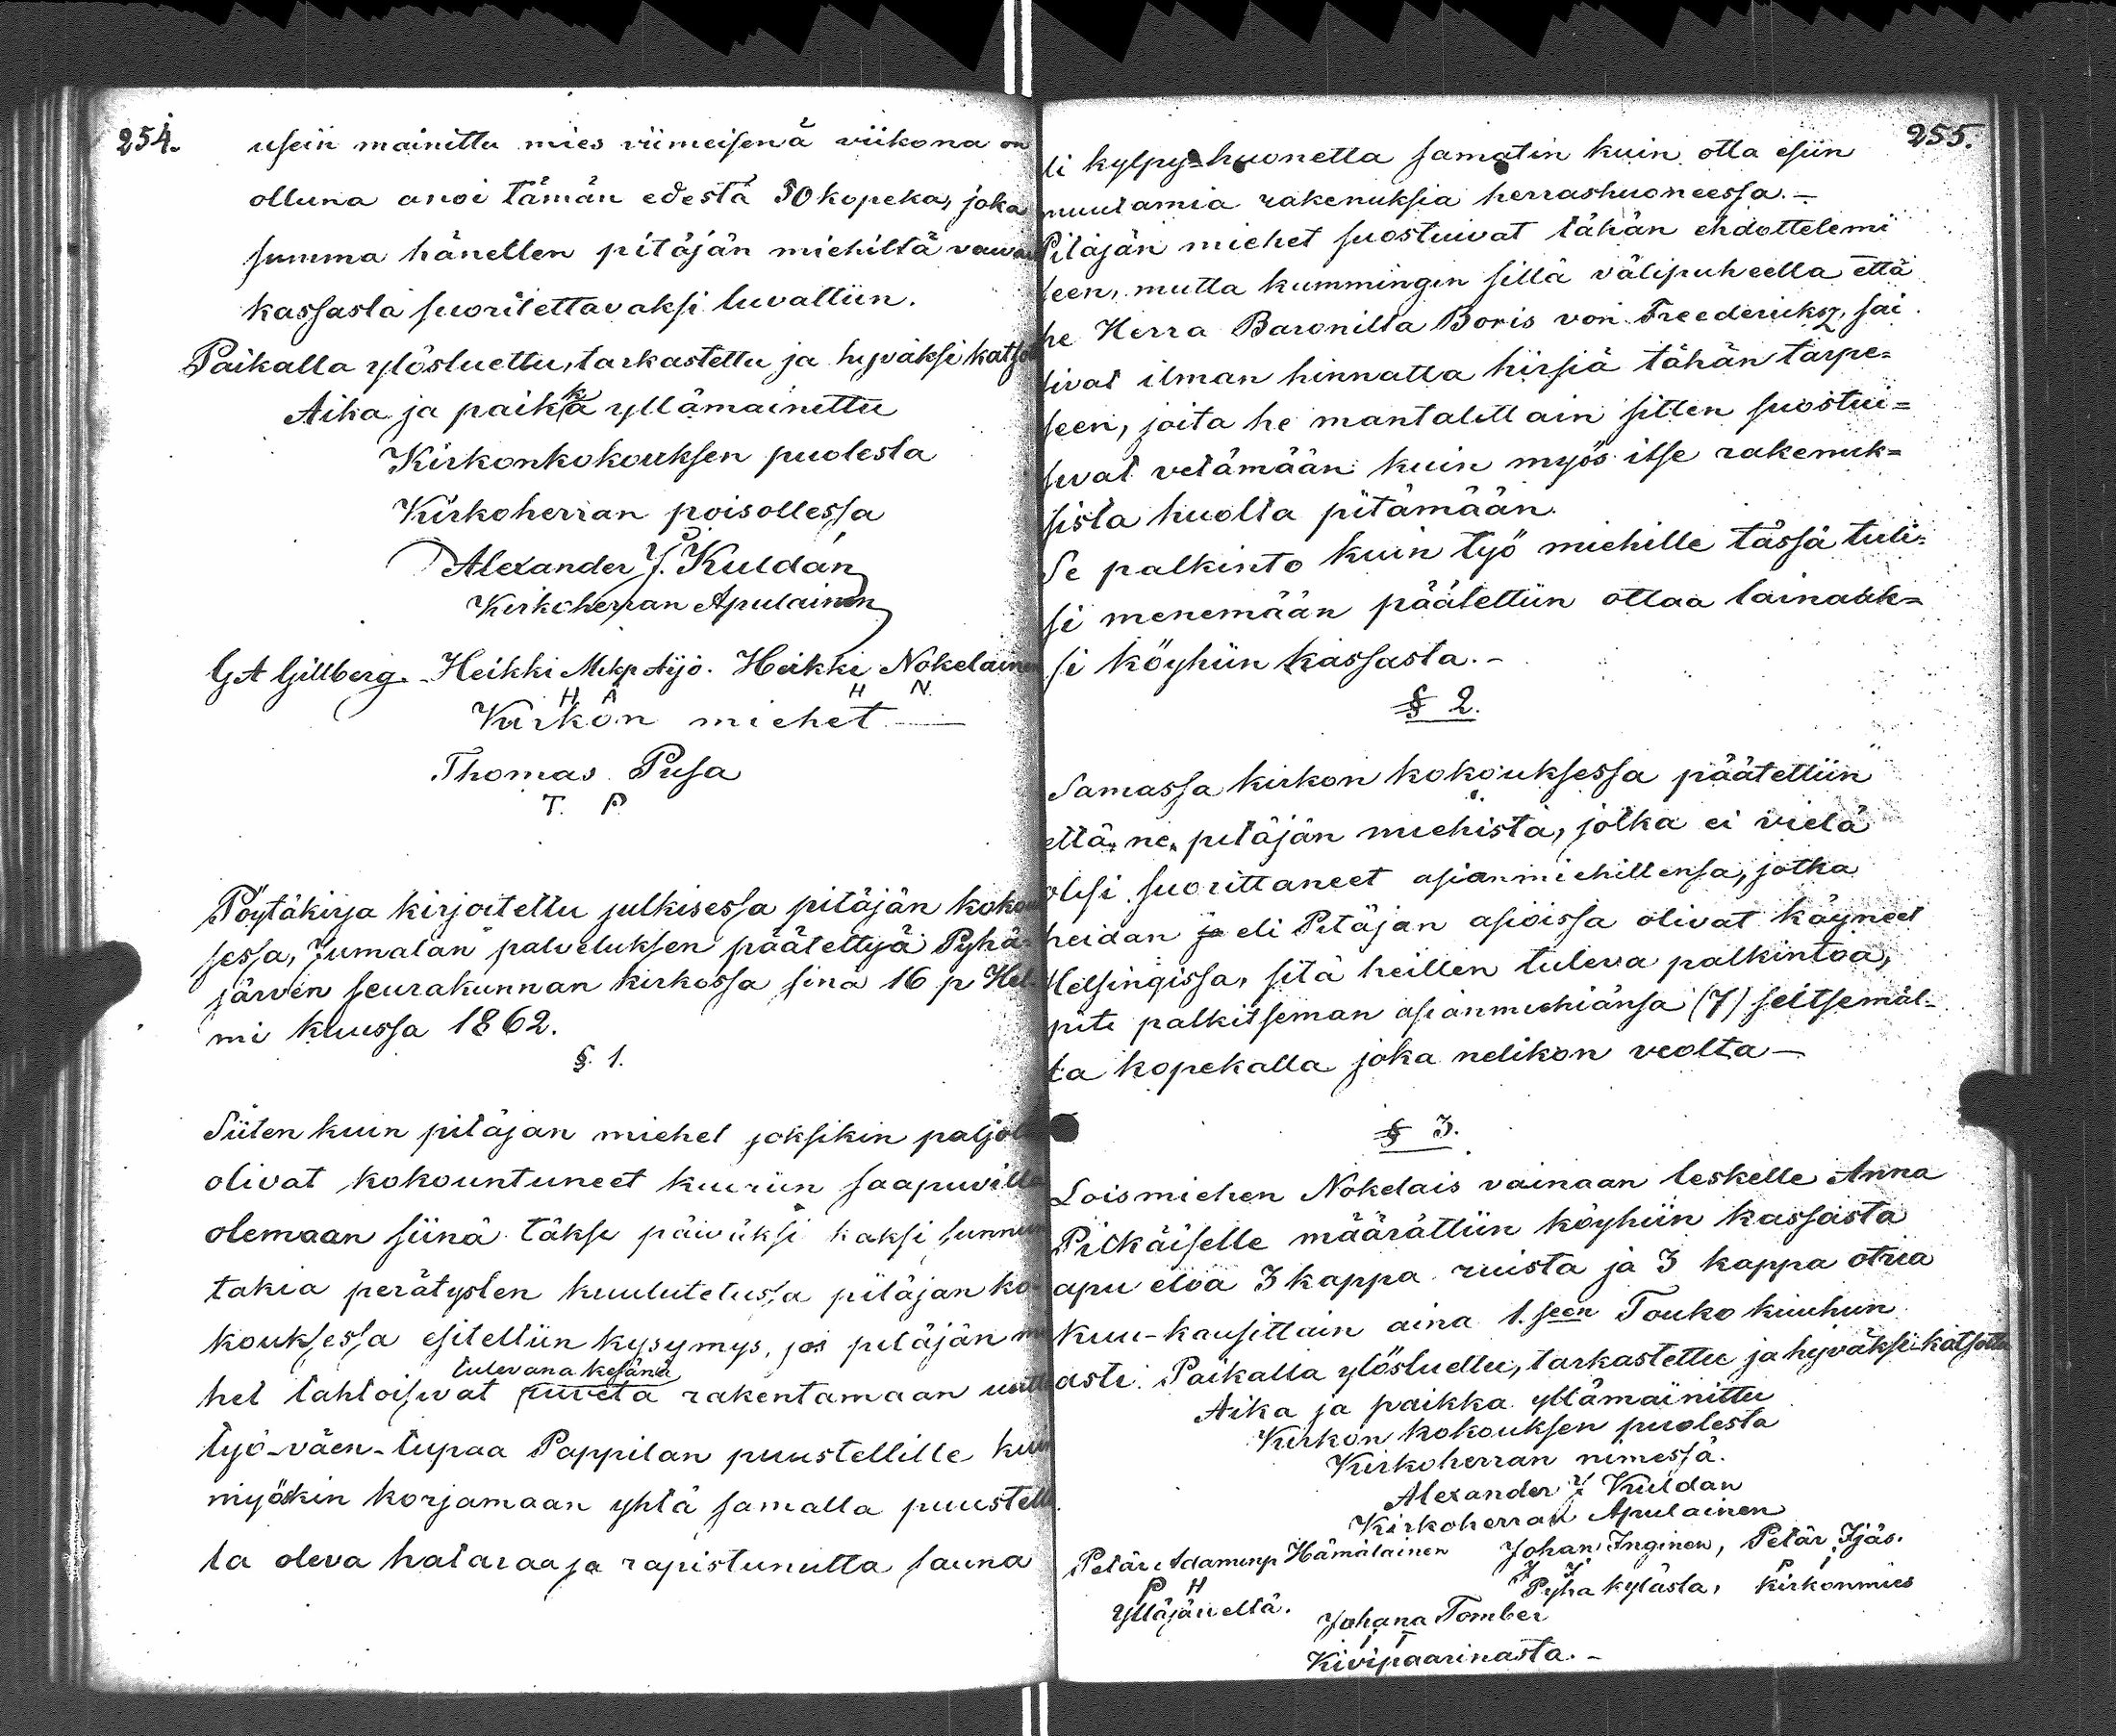 254.
usein mainittu mies viimeisenä viikona on
olluna anoi tämän edestä 50 kopeka, joka
summa hänellen pitäjän miehiltä vaivais
kassasta suoritettavaksi luvattiin.
Paikalla ylösluettu, tarkastettu ja hyväksi katsott
Aika ja paikka yllämainittu
Kirkonkokouksen puolesta
Kirkoherran poisollessa
Alexander J. Kuldán
Kirkoherran Apulainen
G A Gillberg. Heikki Mikp Äijö. Heikki Nokelainen
H Ä H N.
Kirkon miehet
Thomas Pusa
T. P.
Pöytäkirja kirjoitettu julkisessa pitäjän kokou
sessa, Jumalan palveluksen päätettyä Pyhä-
järven seurakunnan kirkossa sinä 16 p Hel
mi kuussa 1862.
§. 1.
Siiten kuin pitäjan miehet joksikin paljol
olivat kokountuneet kuuriin saapuvilla
olemaan siinä täksi päiväksi kaksi sunnun
takia perätysten kuulutetussa pitäjan ko
kouksessa esitettiin kysymys, jos pitäjän mi
het tahtoisivat ruveta rakentamaan uutta
tulevana kesänä
työ-väen-tupaa Pappilan puustellille kuin
myöskin korjamaan yhtä samalla puustelli
la oleva hataraa ja rapistunutta sauna
255.
li kylpy-huonetta samatin kuin otta esiin
muutamia rakenuksia herrashuoneessa.-
Pitäjän miehet suostuivat tähän ehdottelemi
seen, mutta kummingin sillä välipuheella että
he Herra Baronilta Boris von Freedericksz, sai
sivat ilman hinnatta hirsiä tähän tarpe=
seen, joita he mantalittain sitten suostui=
sivat vetämään kuin myös itse rakenuk=
sista huolta pitämään.
Se palkinto kuin työ miehille tässä tuli=
si menemään päätettiin ottaa lainaak=
si köyhiin kassasta.-
§ 2.
Samassa kirkon kokouksessa päätettiin
että ne pitäjän miehistä, jotka ei vielä
olisi suorittaneet asianmiehillensa, jotka
heidan ja eli Pitäjan asioissa olivat käyneet
Helsingissa, sitä heillen tuleva palkintoa,
piti palkitseman asianmiehiänsa (7) seitsemäl-
la kopekalla joka nelikon veolta-
§ 3.
Loismiehen Nokelais vainaan leskelle Anna
Pitkäiselle määrättiin köyhiin kassasta
apu eloa 3 kappa ruista ja 3 kappa otria
kuu-kausittain aina 1.seen Touko kuuhun
asti. Paikalla ylösluettu, tarkastettu ja hyväksi katsottu
Aika ja paikka yllämainittu
Kirkon kokouksen puolesta
Kirkoherran nimessä.
Alexander J Kuldan
Kirkoherran Apulainen
Petär Adaminp Hämälainen Johan Inginen, Petär Ijäs.
P H J I P I
Ylläjäneltä. Pyhä kylästa, kirkonmies
Johana Tomber
I T
Kivipaarinasta.-